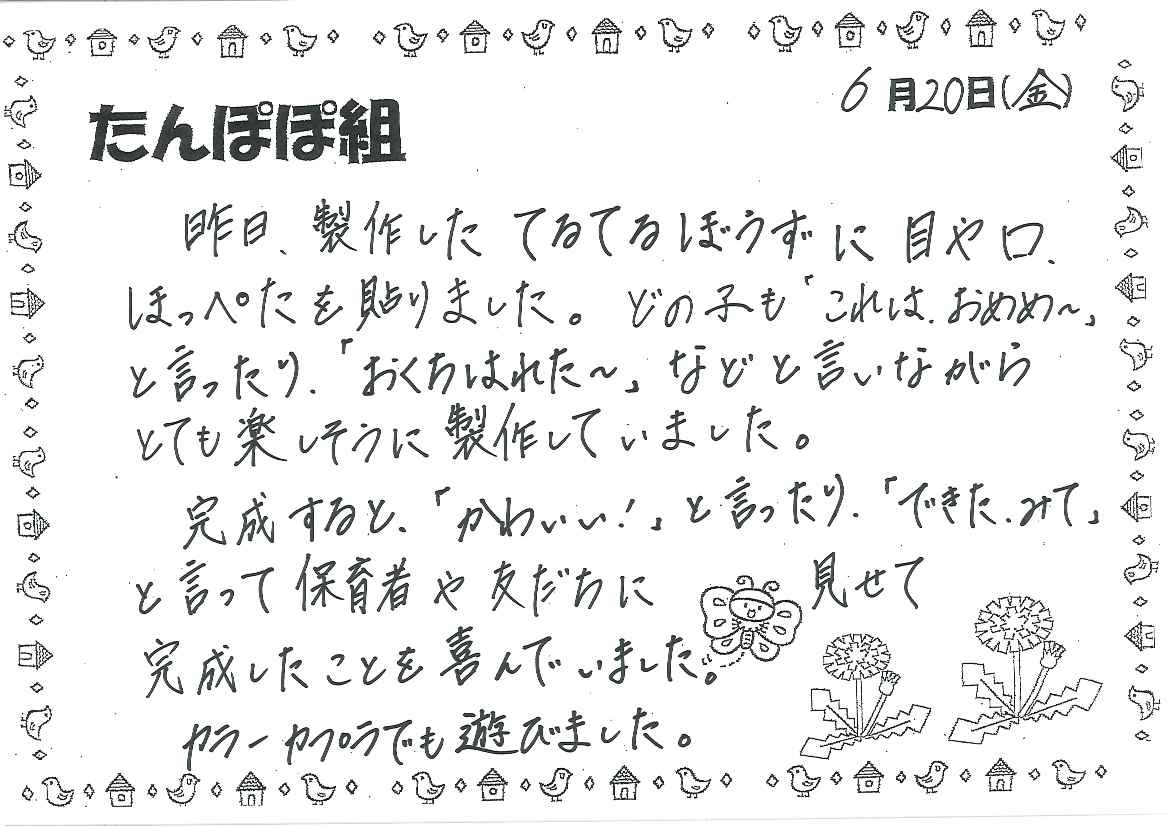 6月20日(金)
たんぽぽ組
昨日、製作したてるてるぼうずに目や口、
ほっぺたを貼りました。どの子も「これは、おめめ～」
と言ったり、「おくちはれた～」などと言いながら
とても楽しそうに製作していました。
完成すると、「かわいい!」と言ったり、「できた、みて」
と言って保育者や友だちに見せて
完成したことを喜んでいました。
カラーカプラでも遊びました。